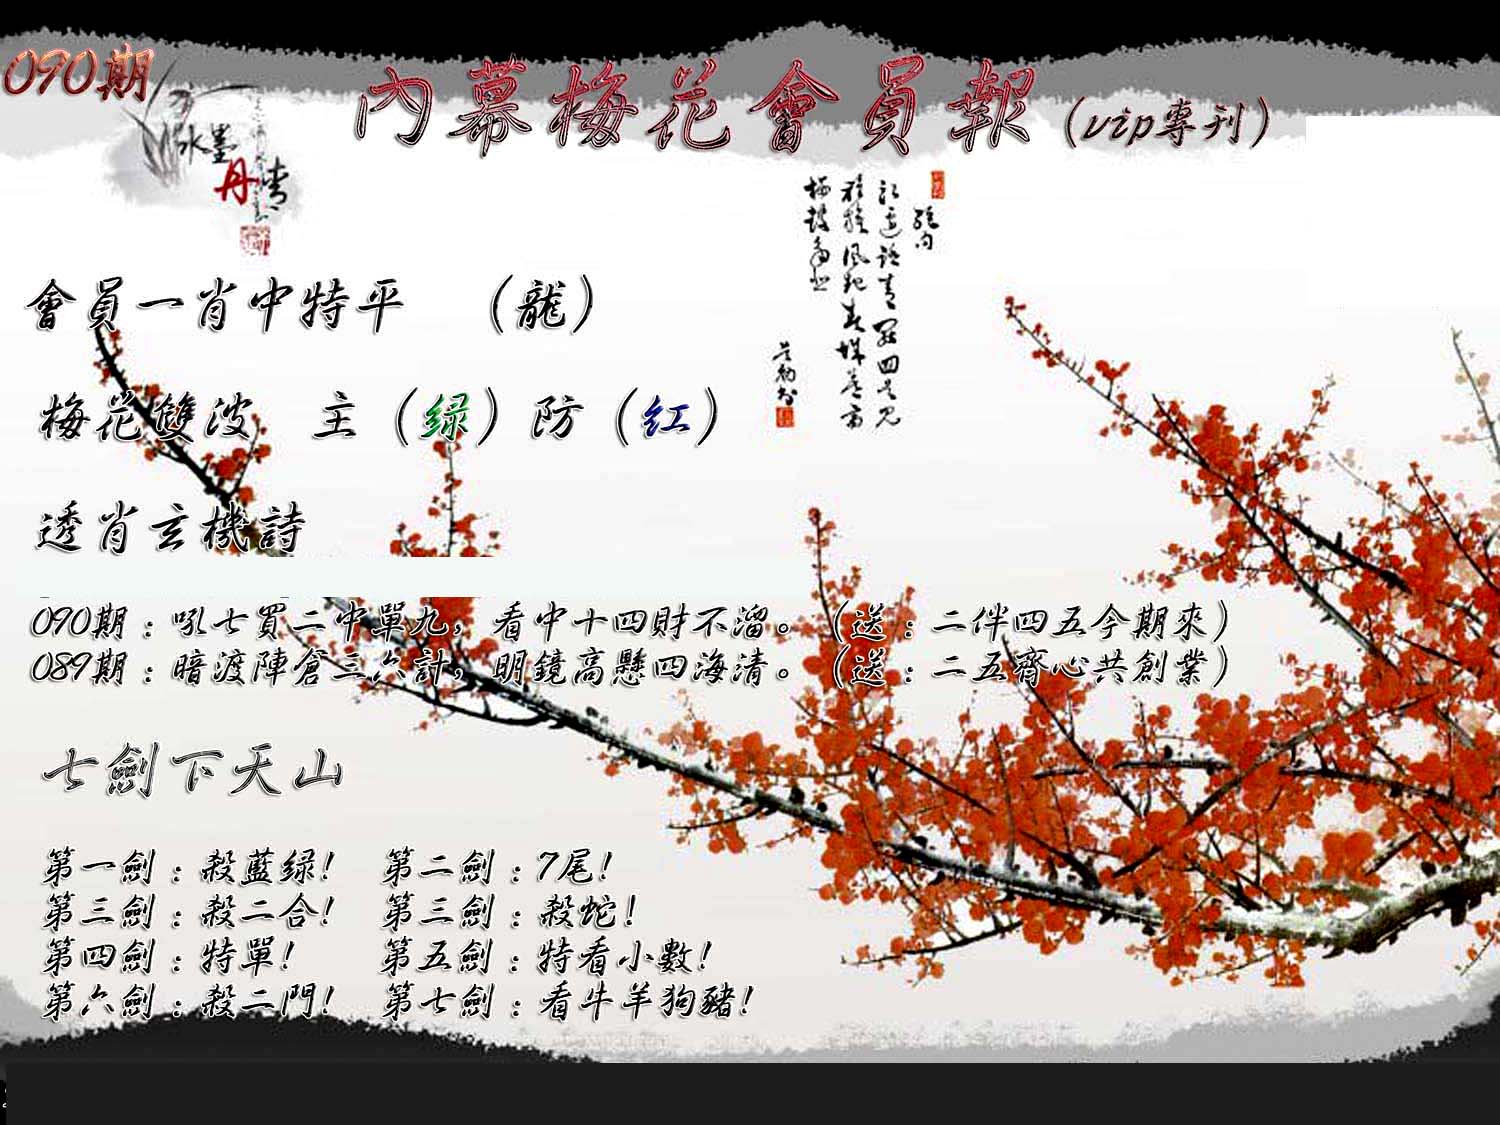 090期
內幕梅花會員報(vip專刊)
水墨
丹青
會員一肖中特平 (龍)
梅花雙波 主(绿)防(红)
透肖玄機詩
090期:吼七買二中單九,看中十四財不溜。(送:二伴四五今期來)
089期:暗渡陣倉三六計,明鏡高懸四海清。(送:二五齊心共創業)
七劍下天山
第一劍:殺藍绿! 第二劍:7尾!
第三劍:殺二合! 第三劍:殺蛇!
第四劍:特單! 第五劍:特看小數!
第六劍:殺二門! 第七劍:看牛羊狗豬!